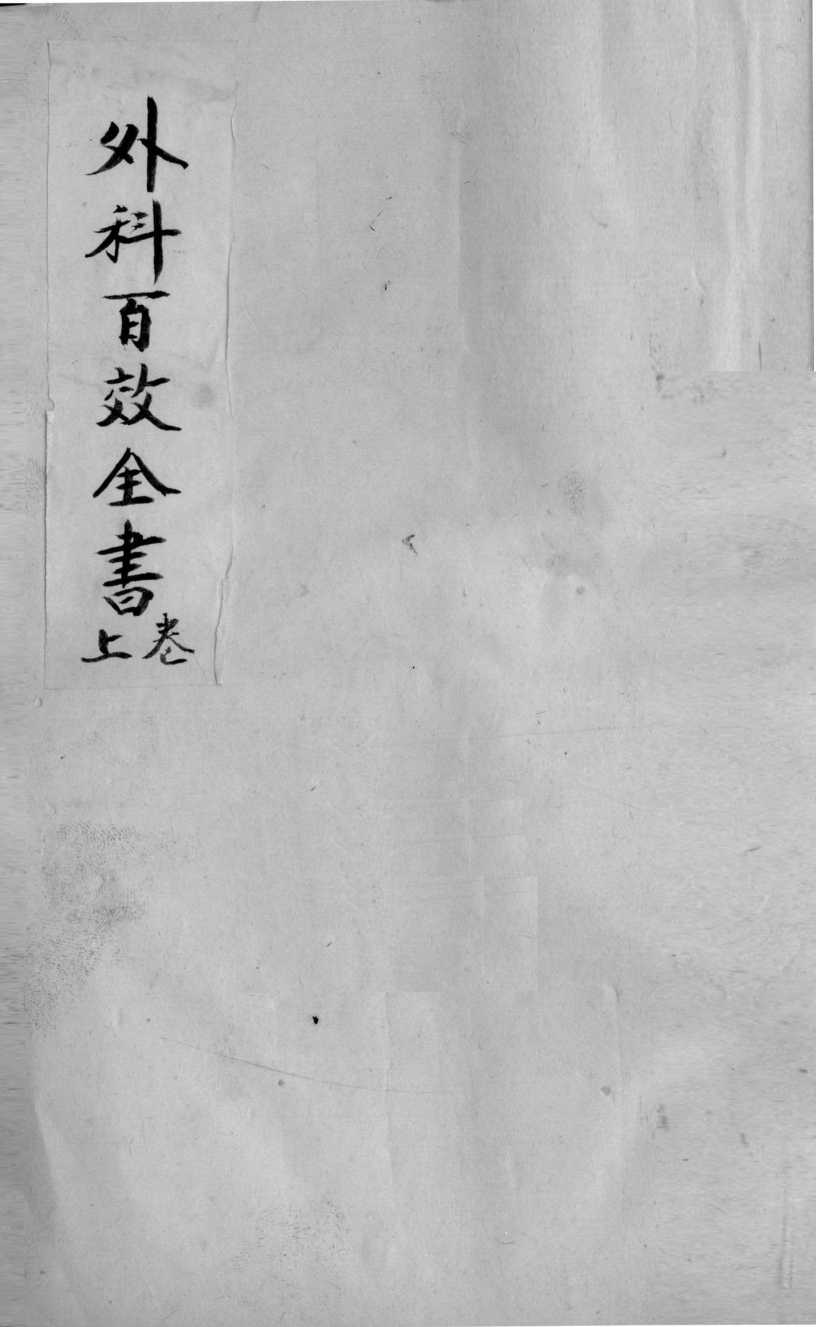 外科百效全書
卷上